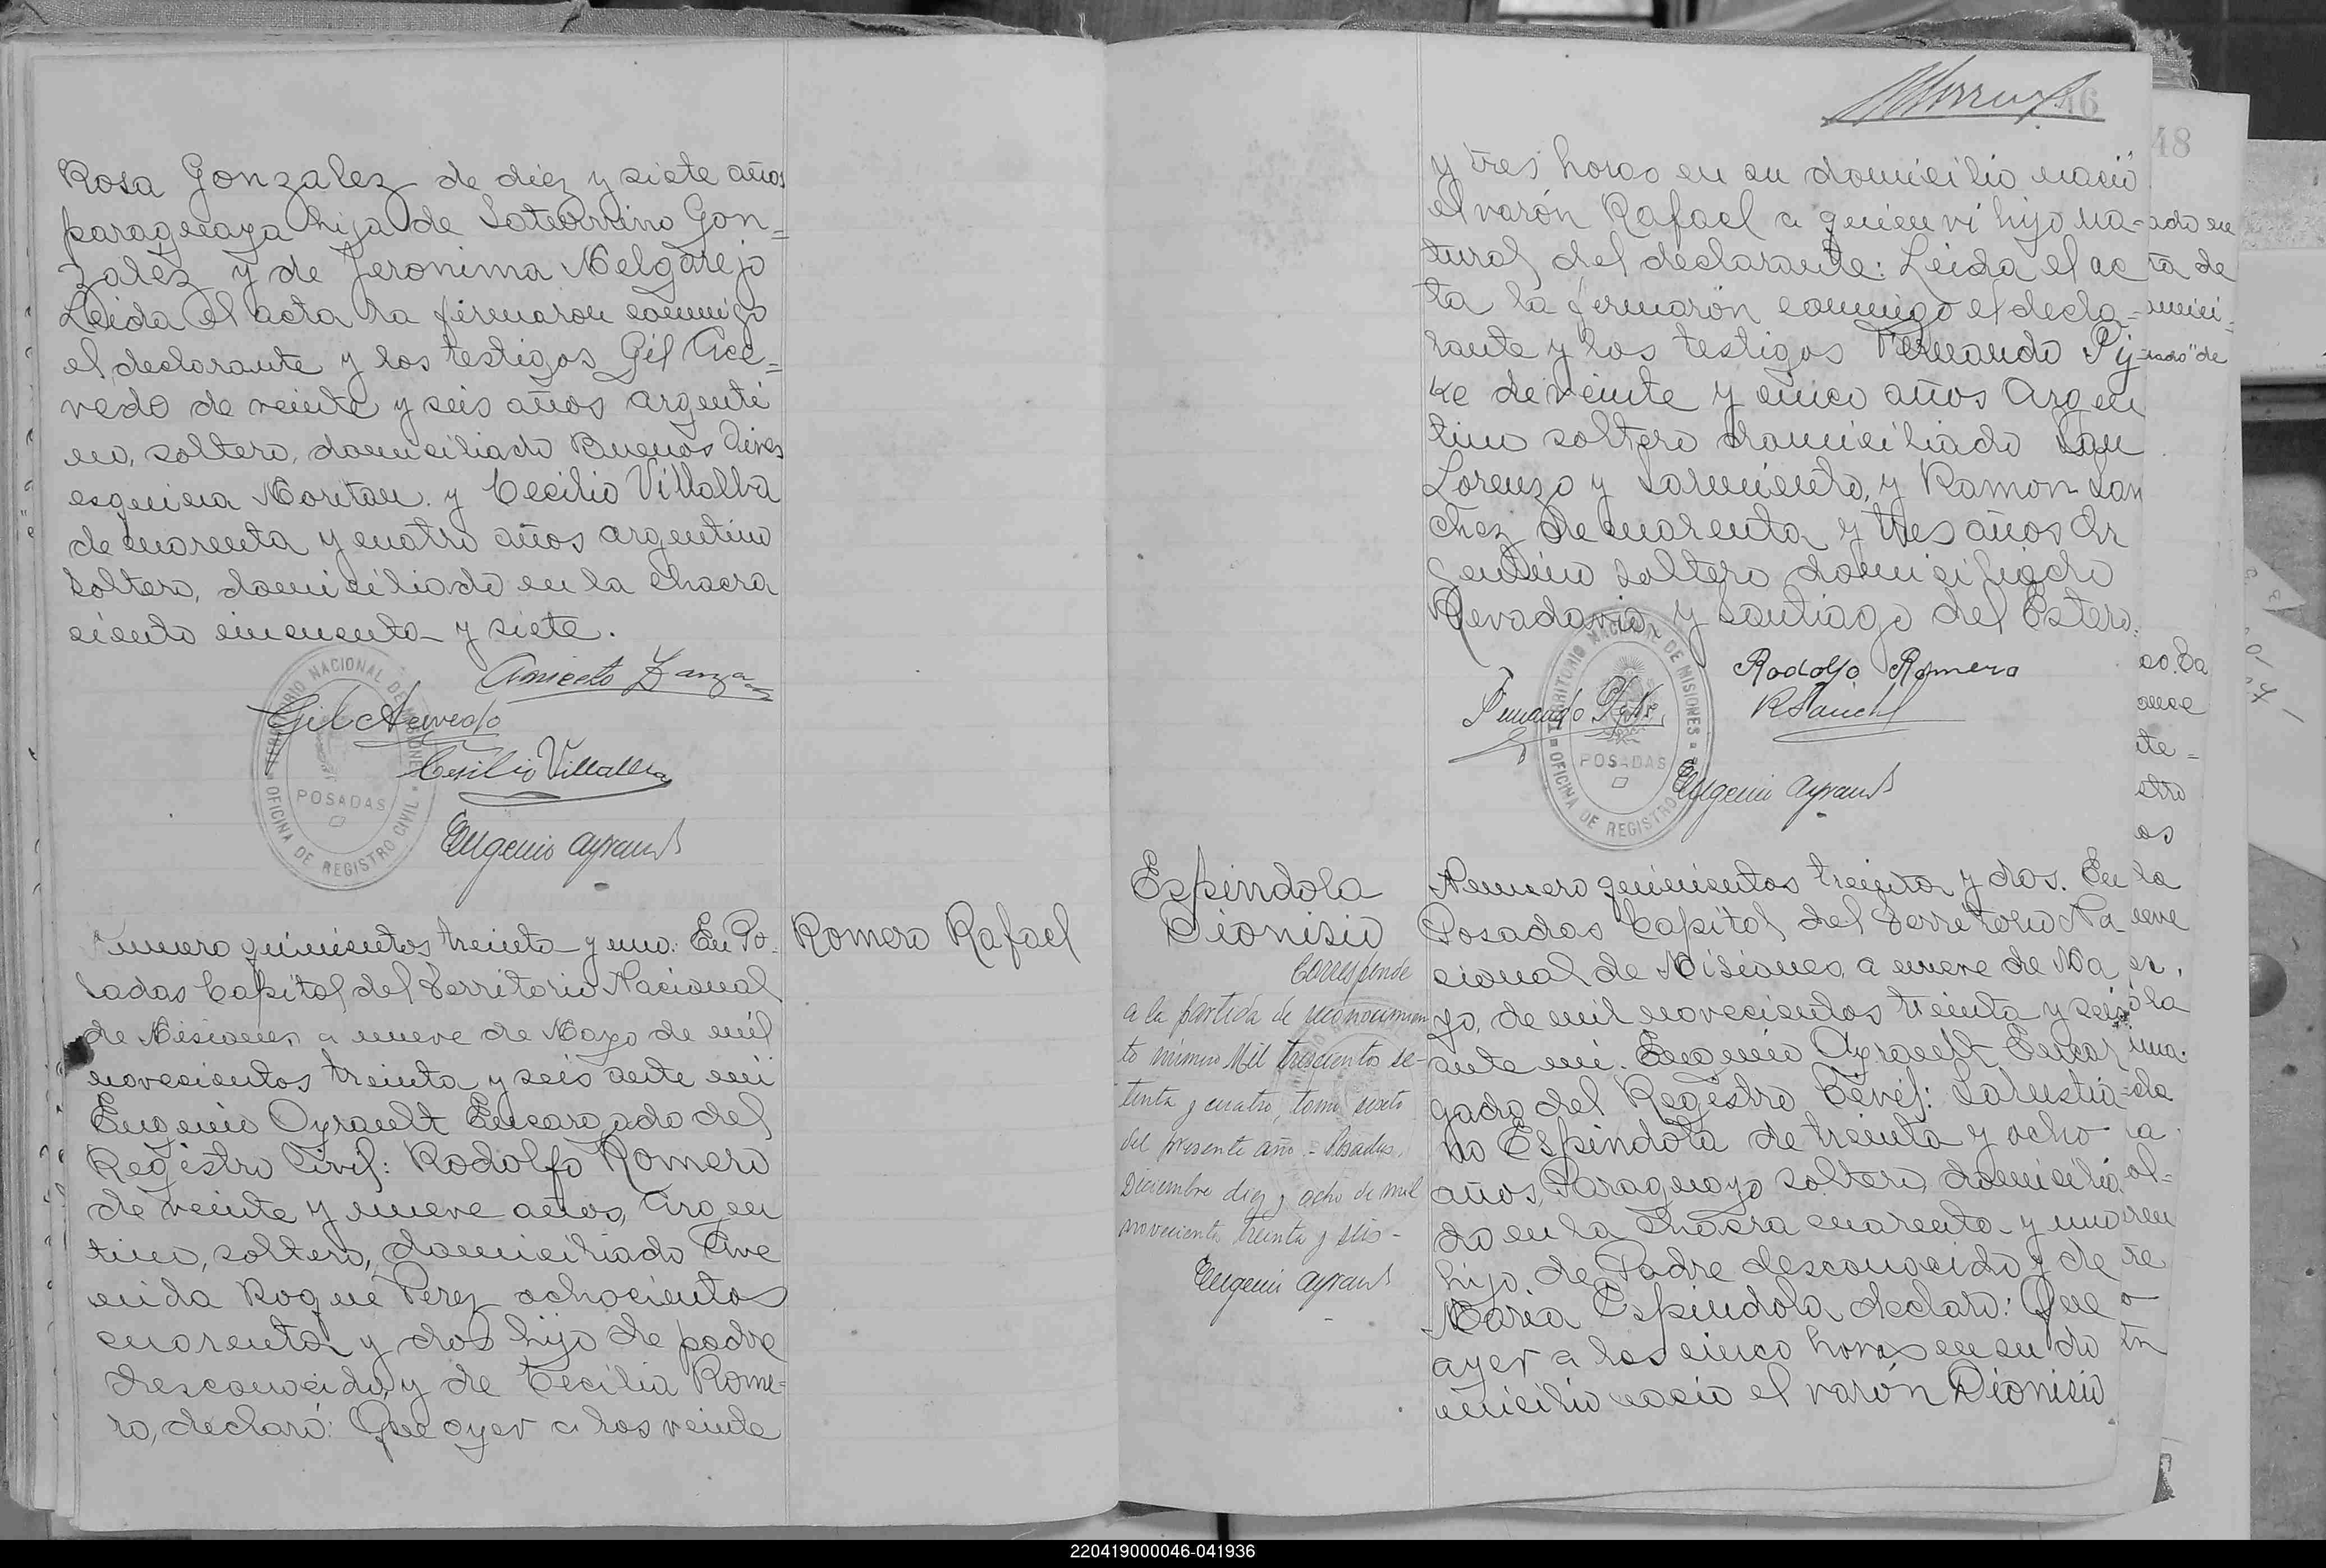 Rosa Gonzalez de diez y siete años
paraguaya hija de Saturnino Gon=
zalez y de Jeronima Melgarejo
Leida el acta la firmaron conmigo
el declarante y los testigos Gil Ace=
vedo de veinte y seis años argenti
no, soltero, domiciliado Buenos Aires
esquina Moritan. y Cecilio Villalba
de cuarenta y cuatro años argentino
soltero, domiciliado en la chacra
ciento cincuenta y siete.
Aniceto
Gil Acevedo
Cecilio Villalba
Eugenio Ayrault
TERRITORIO NACIONAL DE MISIONES
POSADAS
OFICINA DE REGISTRO CIVIL
Romero Rafael
Numero quinientos treinta y uno: En Po-
sadas Capital del Territorio Nacional
de Misiones, a nueve de Mayo de mil
novecientos treinta y seis ante mi
Eugenio Ayrault Encargado del
Registro Civil: Rodolfo Romero
de veinte y nueve años, Argen
tino, soltero, domiciliado Ave
nida Roque Perez ochocientos
cuarenta y dos hijo de padre
desconocido y de Cecilia Rome=
ro, declaró: Que ayer a las veinte
46
y tres horas en su domicilio nació
el varón Rafael a quien vi hijo na-
tural del declarante: Leida el ac
ta la firmarón conmigo el decla-
rante y los testigos Fernando Py
ke de veinte y cinco años Argen
tino soltero domiciliado San
Lorenzo y Sarmiento, y Ramon San
chez de cuarenta y tres años Ar
gentino soltero domiciliado
Rivadavia y Santiago del Estero.
Rodolfo Romero
Fernando Pyke
RSanchez
Eugenio Ayrault
TERRITORIO NACIONAL DE MISIONES
POSADAS
OFICINA DE REGISTRO
Espindola
Dionisio
Corresponde
a la partida de reconocimien
to número Mil trescientos se-
tenta y cuatro, tomo sexto
del presente año.- Posadas,
Diciembre diez y ocho de mil
novecientos treinta y seis-
Eugenio Ayrault
Numero quinientos treinta y dos. En
Posadas Capital del Territorio Na
cional de Misiones, a nueve de Ma
yo, de mil novecientos treinta y seis
ante mi. Eugenio Ayrault Encar
gado del Registro Civil: Salustia
no Espindola de treinta y ocho
años, Paraguayo soltero, domicilia
do en la chacra cuarenta y uno
hijo de Padre desconocido y de
Maria Espindola, declaró: Que
ayer a las cinco horas en su do
micilio nacio el varón Dionisio
48
220419000046-041936